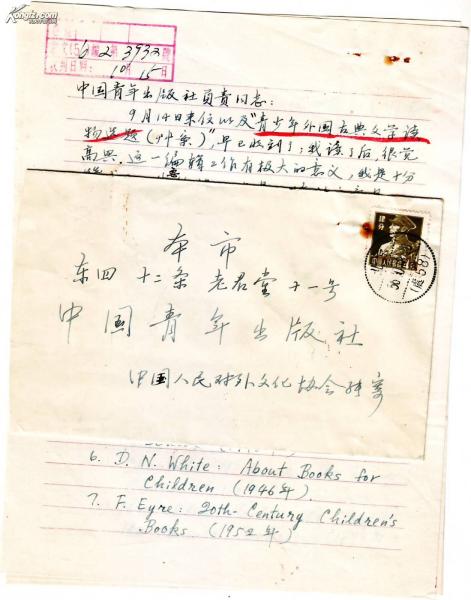 孔夫子旧书网
Kongfz.com
文(56)编2第3933号
收到日期: 10月15日
中国青年出版社负责同志:
9月14日来信以及“青少年外国古典文学读
物选题(草案)”, 早已收到了; 我读了后, 很觉
高兴. 这一编辑工作有极大的意义, 我是十分
本市
东四十二条老君堂十一号
中国青年出版社
中国人民对外文化协会转寄
6. D. N. White: About Books for
Children (1946年).
7. F. Eyre: 20th-Century Children's
Books (1952年)